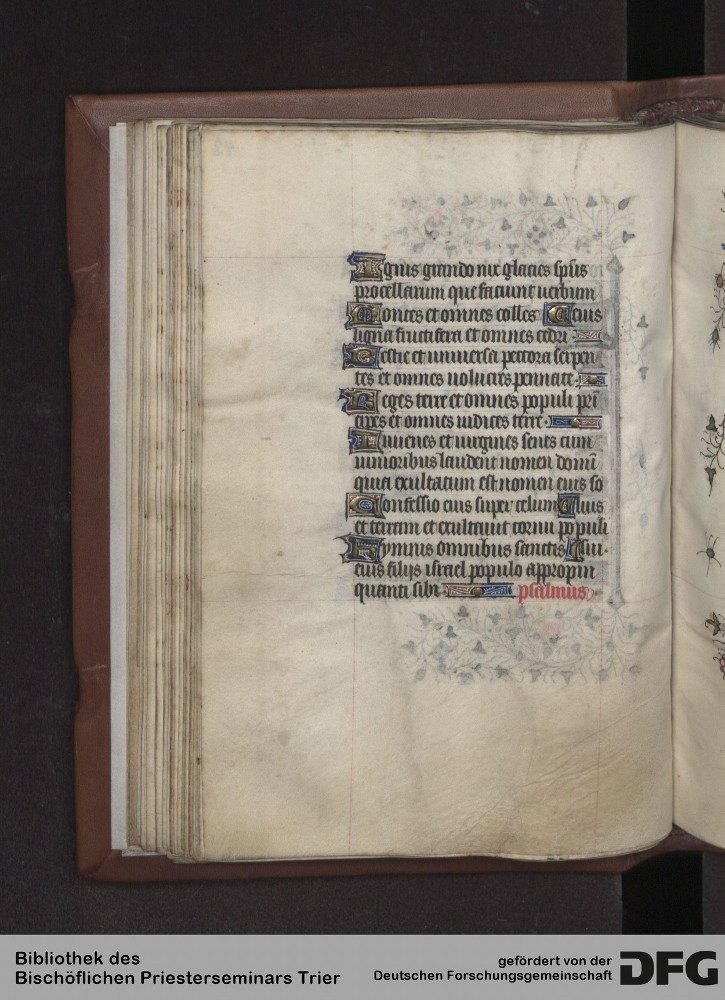 Ignis grando nix glacies sp̄us
procellarum que faciunt uerbum
Montes et omnes colles eius
ligna fructifera et omnes cedri
Bestie et uniuersa peccora serpen
tes et omnes uolucres pennate
Reges terre et omnes populi pri
cipes et omnes iudices terre
Iuuenes et uirgines senes cum
iunioribus laudent nomen domī
quia exultatum est nomen eius so
Confessio eius super celum lius
et terram et exultauit cornu populi
Hymnus omnibus sanctis sui
eius filijs israel populo appropin
quanti sibi psalmus
Bibliothek des
Bischöflichen Priesterseminars Trier
gefördert von der
Deutschen Forschungsgemeinschaft
DFG